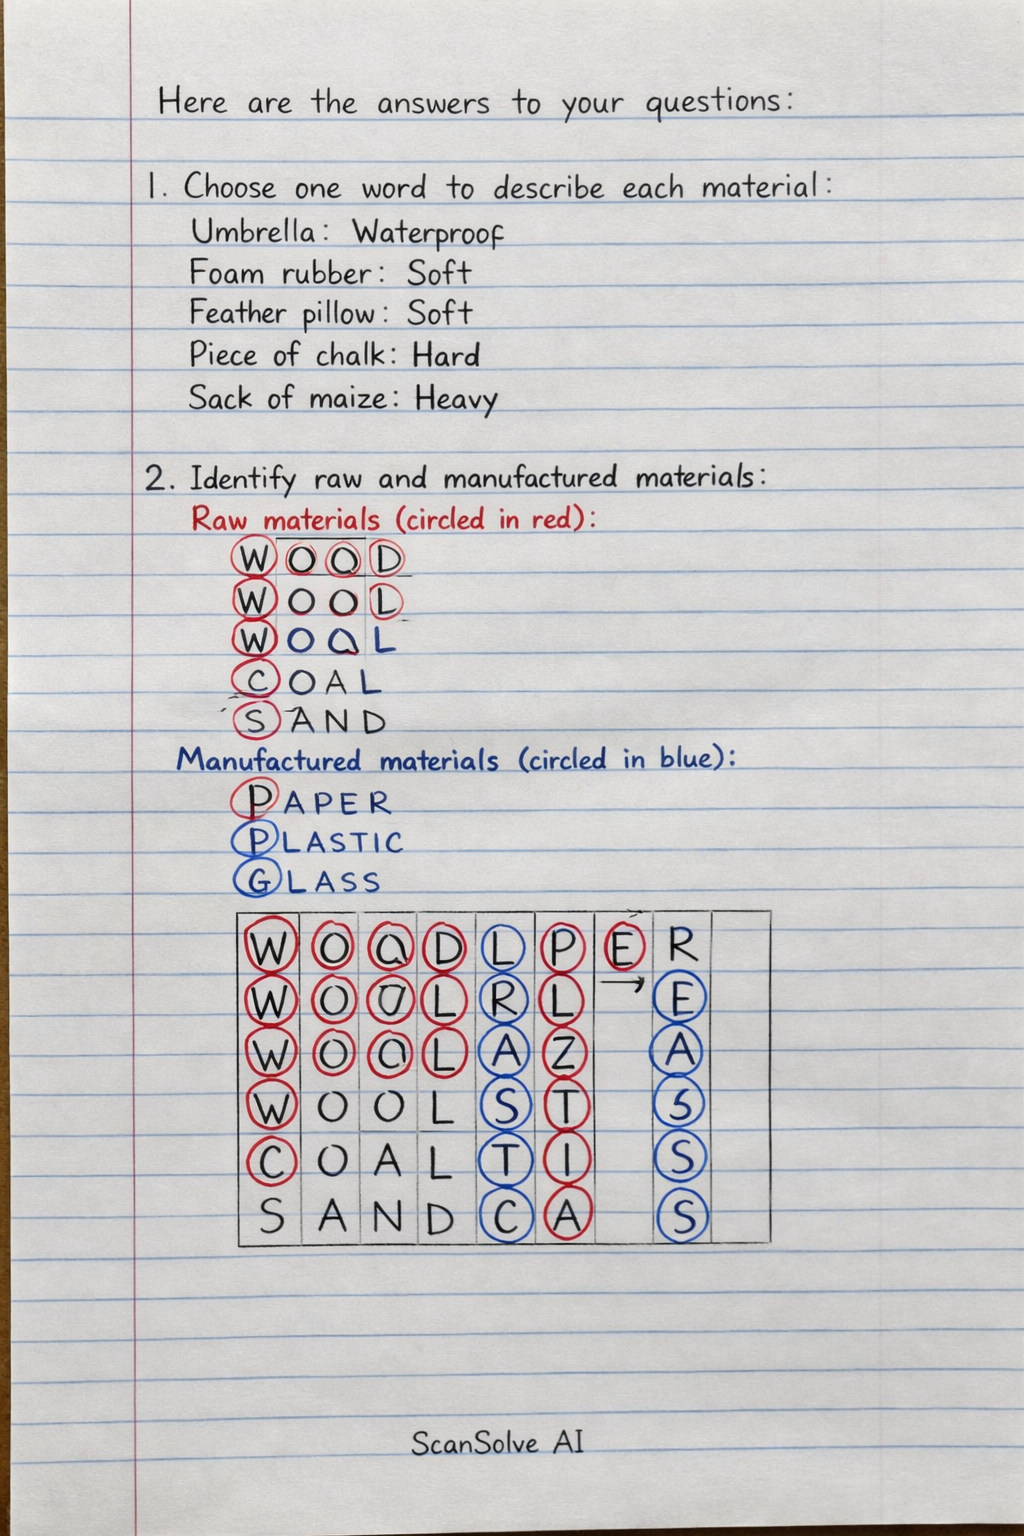 Here are the answers to your questions:
1. Choose one word to describe each material:
Umbrella: Waterproof
Foam rubber: Soft
Feather pillow: Soft
Piece of chalk: Hard
Sack of maize: Heavy
2. Identify raw and manufactured materials:
Raw materials (circled in red):
W O O D
W O O L
W O O L
C O A L
S A N D
Manufactured materials (circled in blue):
P A P E R
P L A S T I C
G L A S S
W O O D L P E R
W O O L R L → E
W O O L A Z A
W O O L S T S
C O A L T I S
S A N D C A S
ScanSolve AI